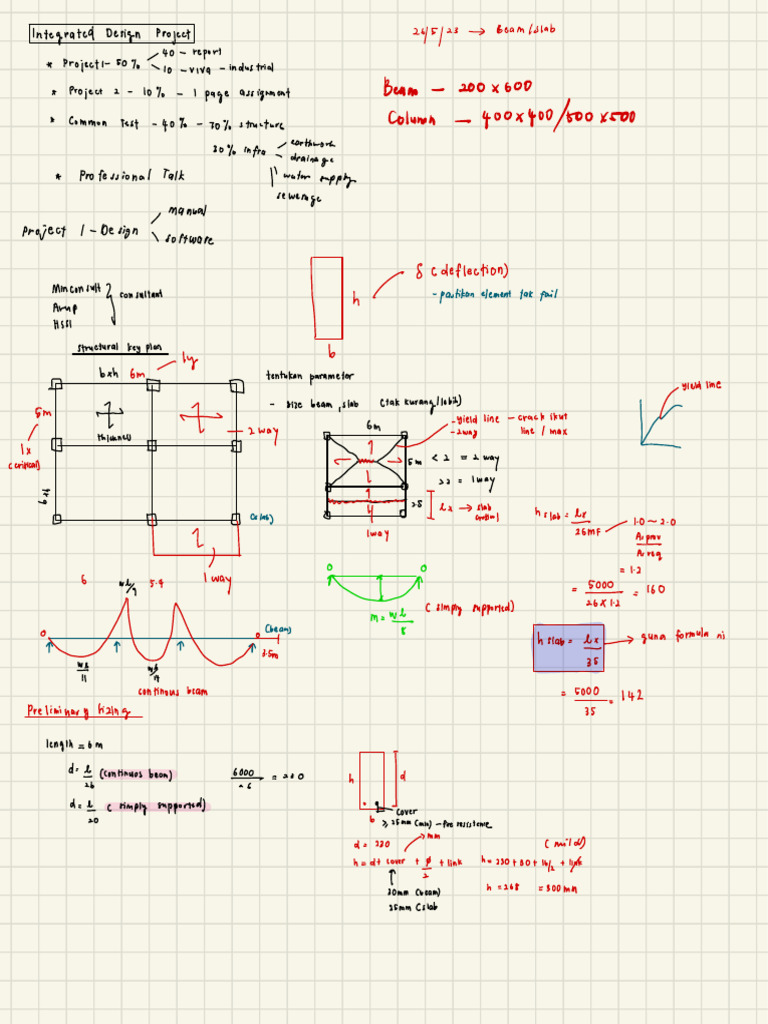 Integrated Design Project
* Project 1 - 50%
40 - report
10 - viva - industrial
* Project 2 - 10% - 1 page assignment
* Common Test - 40% - 70% structure
30% infra
earthwork
drainage
water supply
sewerage
* Professional Talk
Project 1 - Design
manual
software
26/5/23 → Beam/slab
Beam - 200 x 600
Column - 400 x 400 / 500 x 500
Minconsult
Arup
HSSI
consultant
structural key plan
h
b
δ (deflection)
- pastikan element tak fail
bxh 6m
ly
5m
lx
(critical)
thickness
2 way
bxh
(slab)
1 way
tentukan parameter
- size beam, slab (tak kurang/lebih)
6m
- yield line - crack ikut
- 2way line / max
5m < 2 = 2 way
>2 = 1way
2.5
lx → slab
1way
yield line
h slab = lx
26mF
1.0 ~ 2.0
As prov
As req
= 1.2
= 5000
26 x 1.2
= 160
h slab = lx
35
guna formula ni
= 5000
35
= 142
6
wl/9
5.4
0
0
(beam)
3.5m
wl
11
wl
14
continous beam
0
0
m = wl
8
(simply supported)
Preliminary Sizing
length = 6m
d = l
26
(continuos beam)
6000
26
= 230
d = l
20
(simply supported)
h
d
b
cover
≥ 25mm (min) - fire resistence
d = 230
mm
(mild)
h = d + cover + ϕ
2
+ link
h = 230 + 30 + 16/2 + link
h = 268 = 300mm
30mm (beam)
25mm (slab